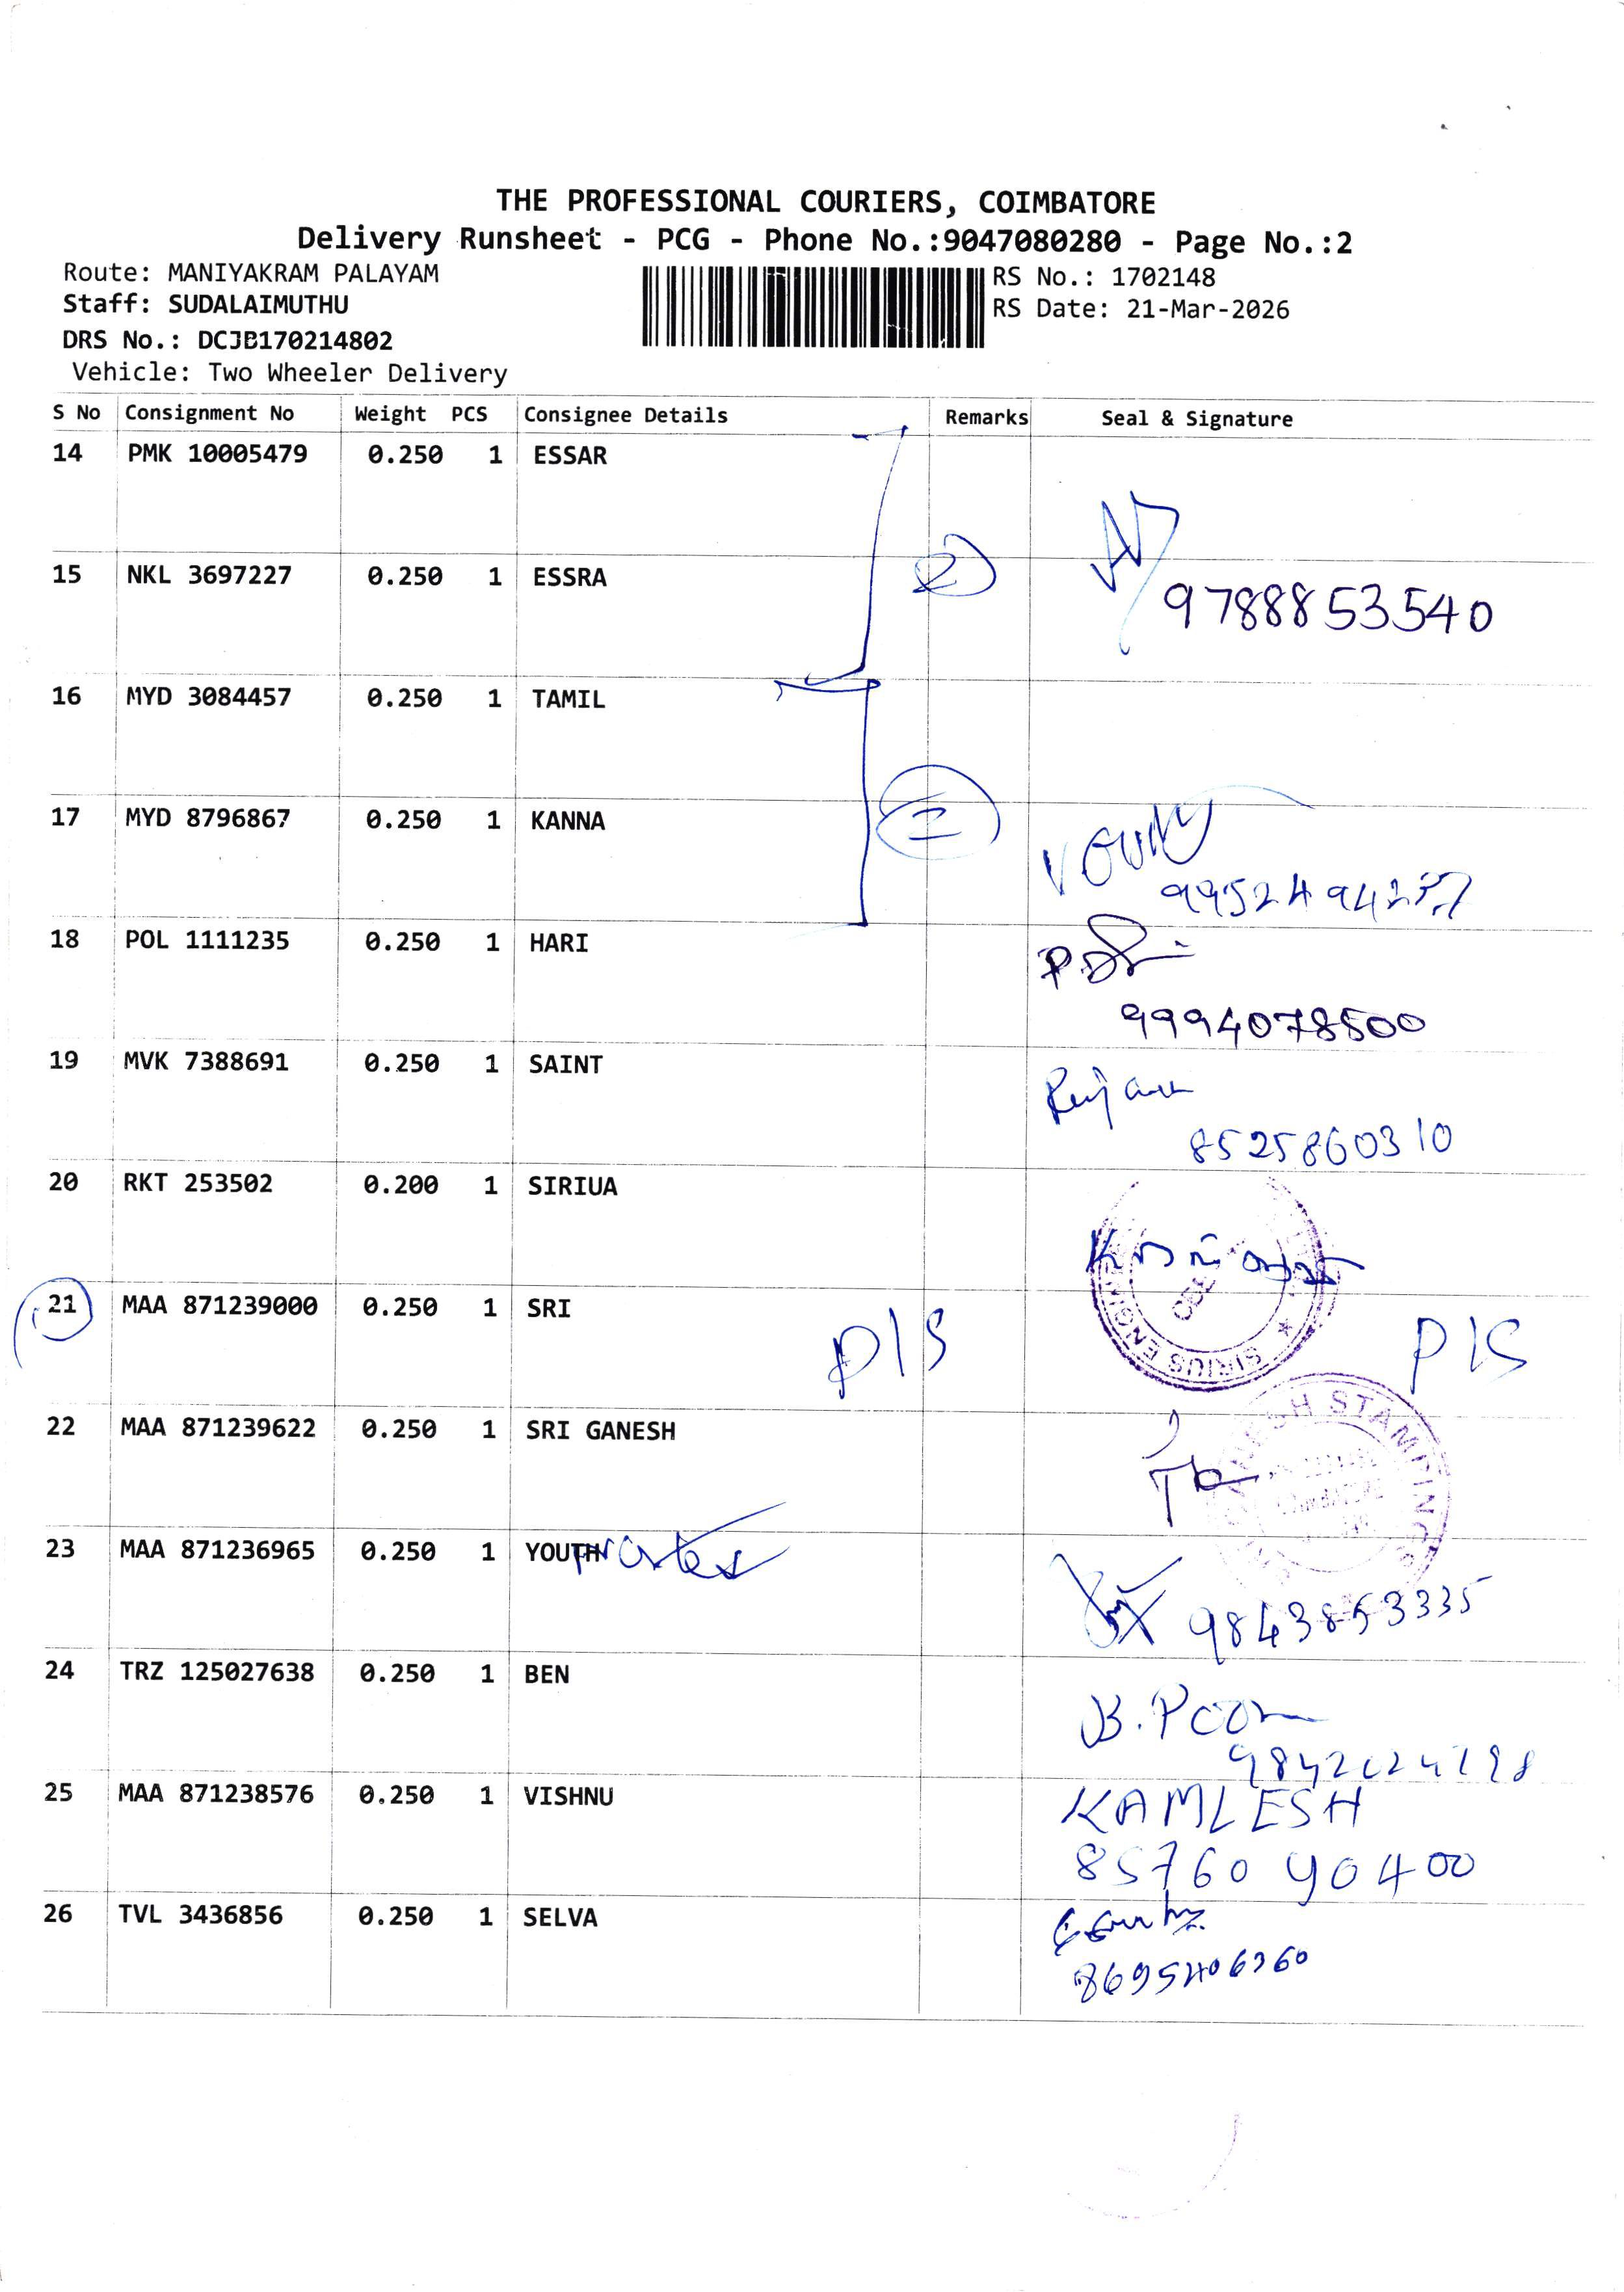 THE PROFESSIONAL COURIERS, COIMBATORE
Delivery Runsheet - PCG - Phone No.:9047080280 - Page No.:2
Route: MANIYAKRAM PALAYAM
Staff: SUDALAIMUTHU
DRS No.: DCJB170214802
Vehicle: Two Wheeler Delivery
RS No.: 1702148
RS Date: 21-Mar-2026
S No Consignment No Weight PCS Consignee Details Remarks Seal & Signature
14 PMK 10005479 0.250 1 ESSAR
15 NKL 3697227 0.250 1 ESSRA 2
9788853540
16 MYD 3084457 0.250 1 TAMIL
17 MYD 8796867 0.250 1 KANNA
18 POL 1111235 0.250 1 HARI
9994078500
19 MVK 7388691 0.250 1 SAINT
8525860310
20 RKT 253502 0.200 1 SIRIUA
21 MAA 871239000 0.250 1 SRI P/S P/S
SIRIUS
22 MAA 871239622 0.250 1 SRI GANESH
STAMPING
23 MAA 871236965 0.250 1 YOUTH
9843853335
24 TRZ 125027638 0.250 1 BEN
25 MAA 871238576 0.250 1 VISHNU KAMLESH
85760 90400
26 TVL 3436856 0.250 1 SELVA
8695406360